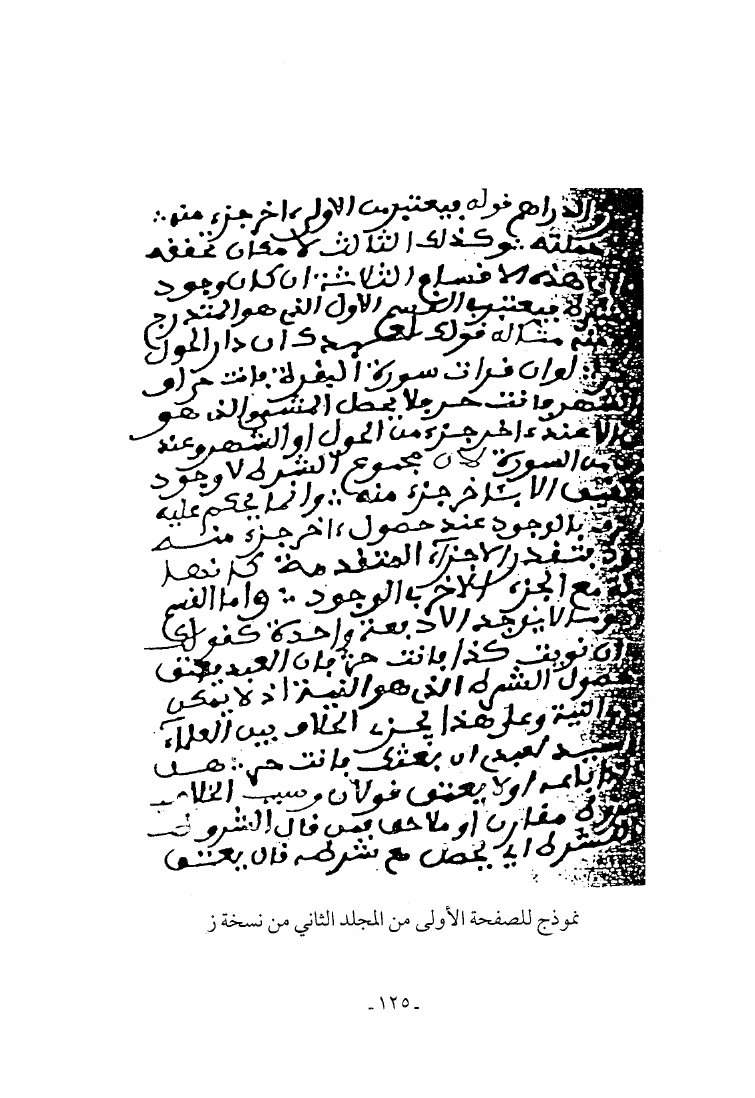 والدراهم قوله فيعتبر من الاولى ءاخر جزء منه ∴
وكذلك الثالث لامكان تحققه
هذه الاقسام الثلاثة ∴ ان كان وجود
فيعتبر القسم الاول الذي هو المتدرج
مثاله قولك لعبدك ان دار الحول
لو ان قرات سورة البقرة فانت حر او
الشهر فانت حر فلا يحصل المشروط الذي هو
الا عند ءاخر جزء من الحول او الشهر وعند
السورة لان مجموع الشرط لا وجود
الا بآخر جزء منه ∴ وانما يحكم عليه
بالوجود عند حصول ءاخر جزء منه
الاجزاء المتقدمة كانها
مع الجزء الاخر بالوجود ∴ واما القسم
لا يوجد الا دفعة واحدة كقولك
ان نويت كذا فانت حر فان العبد يعتق
حصول الشرط الذي هو النية اذ لا يمكن
النية وعلى هذا يجري الخلاف بين العلماء
السيد لعبده ان بعتك فانت حر ∴ هل
اولا يعتق قولان وسبب الخلاف
مقارن او ملاحق فمن قال المشروط
يحصل مع شرطه قال يعتق
نموذج للصفحة الأولى من المجلد الثاني من نسخة ز
- ١٢٥ -